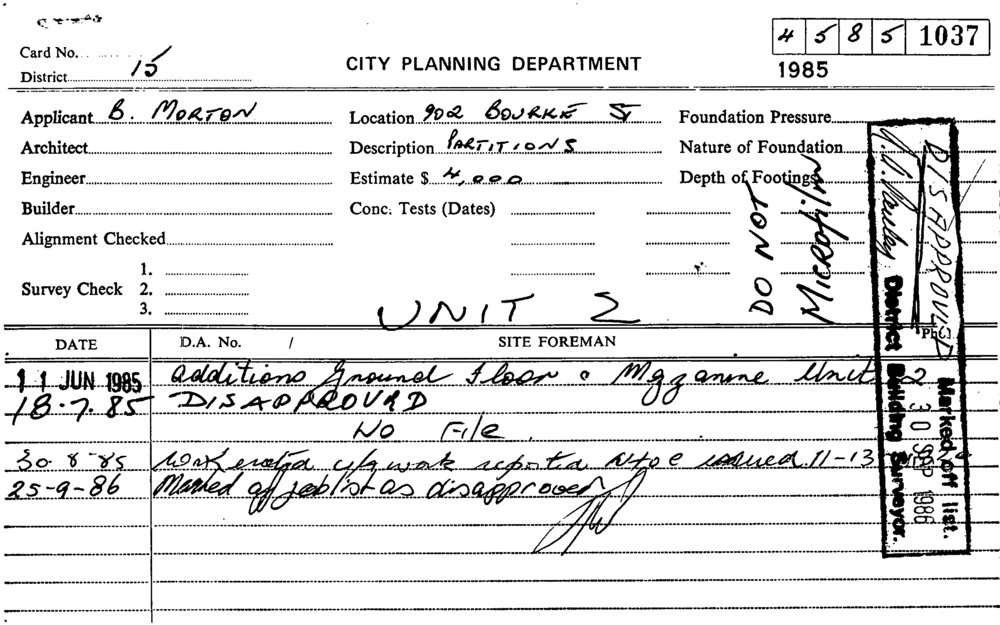 4 5 8 5 1037
1985
Card No.
District 15
CITY PLANNING DEPARTMENT
Applicant B. MORTON
Location 902 BOURKE ST
Foundation Pressure
Architect
Description PARTITIONS
Nature of Foundation
Engineer
Estimate $ 4,000
Depth of Footings
Builder
Conc. Tests (Dates)
Alignment Checked
Survey Check
1.
2.
3.
UNIT 2
DO NOT
Microfilm
DISAPPROVED
District Building Surveyor.
30 SEP 1986
Marked off list.
DATE D.A. No. / SITE FOREMAN Ph
11 JUN 1985 additions Ground Floor & Mezzanine Unit 2
18.7.85 DISAPPROVED
NO File.
30-8-85 work reported issued 11-13
25-9-86 Marked off joblist as disapproved